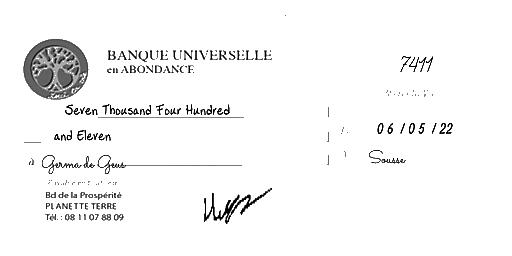 BANQUE UNIVERSELLE
en ABONDANCE
7411
Seven Thousand Four Hundred
and Eleven
06/05/22
à Germa de Geus
Sousse
Bd de la Prospérité
PLANETTE TERRE
Tél. : 08 11 07 88 09